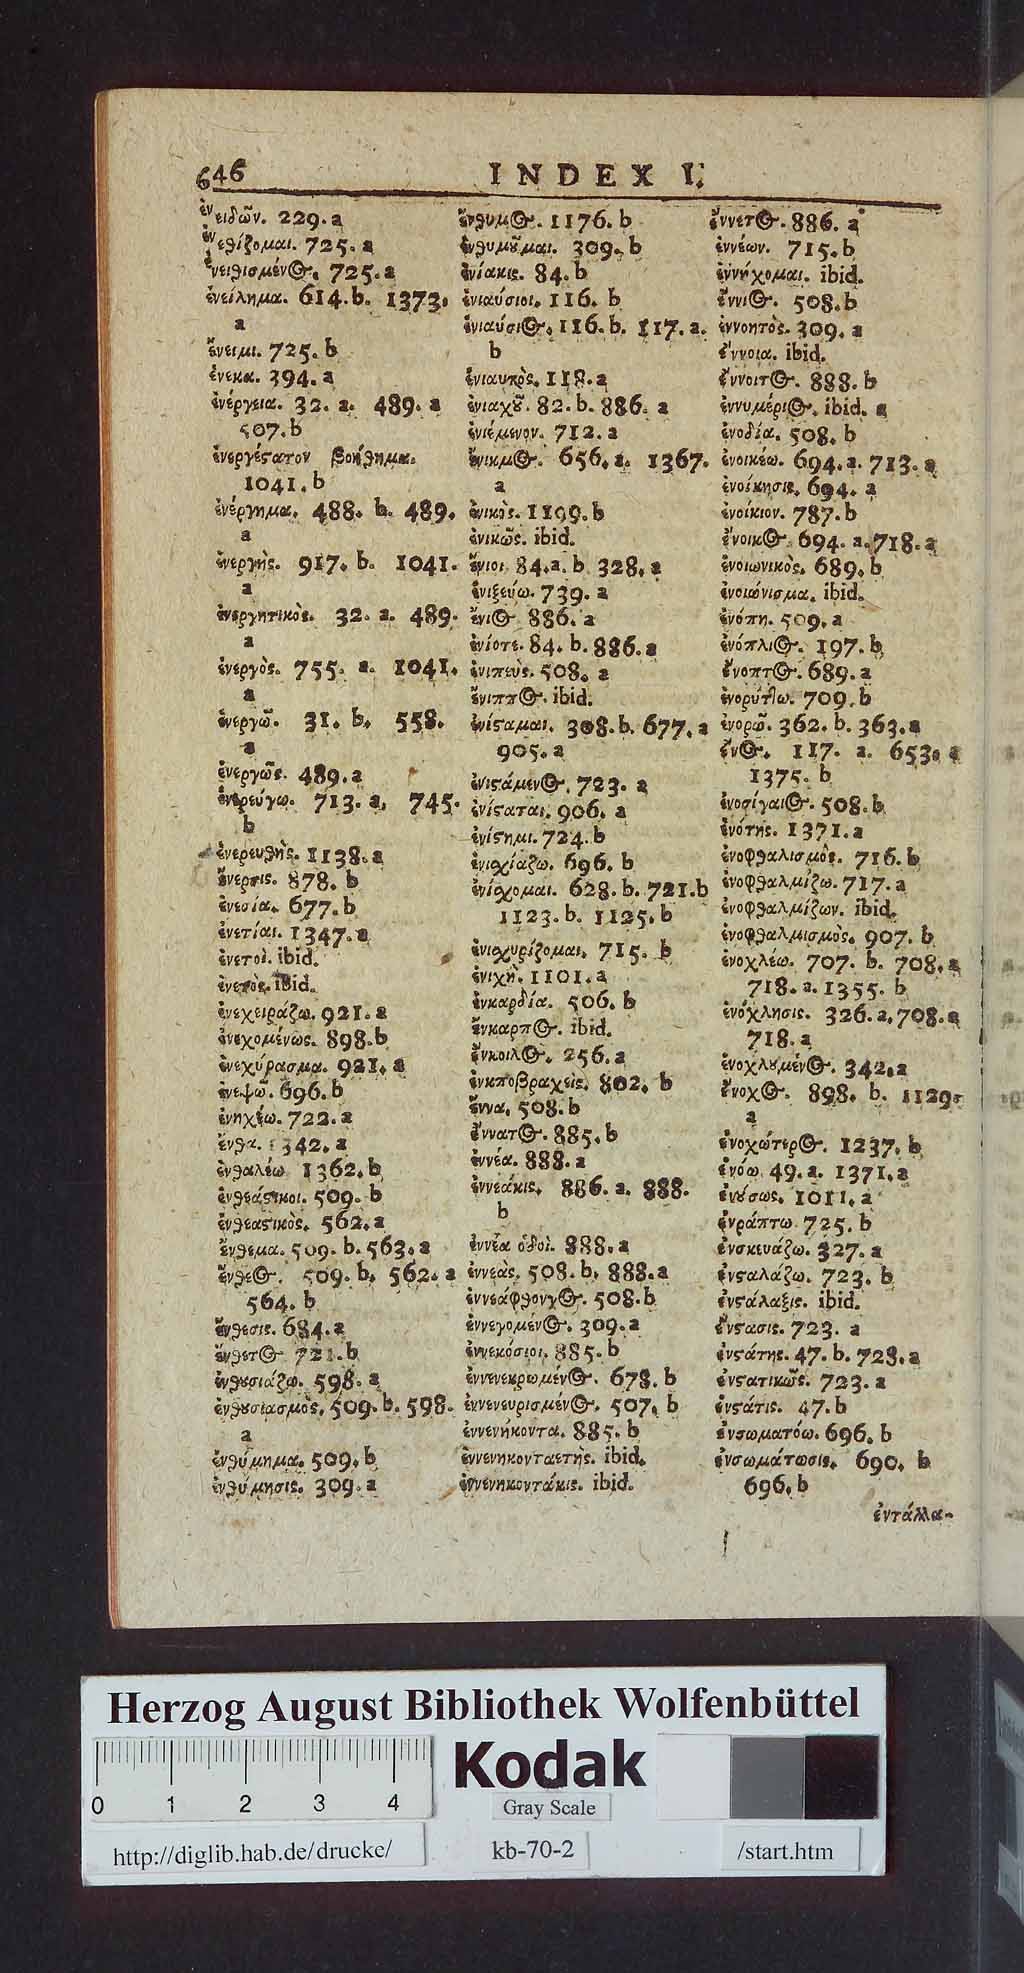 646
INDEX I.
ἐνειδῶν. 229. a
ἐνεθίζομαι. 725. a
ἐνειθισμένος. 725. a
ἐνείλημα. 614. b. 1373.
a
ἔνειμι. 725. b
ἕνεκα. 394. a
ἐνέργεια. 32. a. 489. a
507. b
ἐνεργέστατον βοήθημα.
1041. b
ἐνέργημα. 488. b. 489.
a
ἐνεργής. 917. b. 1041.
a
ἐνεργητικὸς. 32. a. 489.
a
ἐνεργὸς. 755. a. 1041.
a
ἐνεργῶ. 31. b. 558.
a
ἐνεργῶς. 489. a
ἐνερεύγω. 713. a. 745.
b
ἐνερευθὴς. 1138. a
ἔνερσις. 878. b
ἐνεσία. 677. b
ἐνετίαι. 1347. a
ἐνετοὶ. ibid.
ἐνετὸς. ibid.
ἐνεχειράζω. 921. a
ἐνεχομένως. 898. b
ἐνεχύρασμα. 921. a
ἐνεψῶ. 696. b
ἐνηχέω. 722. a
ἔνθα. 1342. a
ἐνθαλέω 1362. b
ἐνθεάστικοι. 509. b
ἐνθεαστικὸς. 562. a
ἔνθεμα. 509. b. 563. a
ἔνθεος. 509. b. 562. a
564. b
ἔνθεσις. 684. a
ἔνθετος 721. b
ἐνθουσιάζω. 598. a
ἐνθουσιασμὸς. 509. b. 598.
a
ἐνθύμημα. 509. b
ἐνθύμησις. 309. a
ἔνθυμος. 1176. b
ἐνθυμοῦμαι. 309. b
ἐνίακις. 84. b
ἐνιαύσιοι. 116. b
ἐνιαύσιος. 116. b. 117. a.
b
ἐνιαυτὸς. 118. a
ἐνιαχοῦ. 82. b. 886. a
ἐνιέμενον. 712. a
ἔνικμος. 656. a. 1367.
a
ἑνικὸς. 1199. b
ἑνικῶς. ibid.
ἔνιοι 84. a. b 328. a
ἐνιξεύω. 739. a
ἔνιος 886. a
ἐνίοτε. 84. b. 886. a
ἐνιπεὺς. 508. a
ἔνιππος. ibid.
ἐνίσταμαι. 308. b. 677. a
905. a
ἐνιστάμενος. 723. a
ἐνίσταται. 906. a
ἐνίστημι. 724. b
ἐνισχίαζω. 696. b
ἐνίσχομαι. 628. b. 721. b
1123. b. 1125. b
ἐνισχυρίζομαι. 715. b
ἐνιχὴ. 1101. a
ἐνκαρδία. 506. b
ἔνκαρπος. ibid.
ἔνκοιλος. 256. a
ἐνκποβραχεὶς. 802. b
ἔννα. 508. b
ἔννατος. 885. b
ἐννέα. 888. a
ἐννεάκις. 886. a. 888.
b
ἐννέα ὁδοὶ. 888. a
ἐννεὰς. 508. b. 888. a
ἐννεάφθογγος. 508. b
ἐννεγομένος. 309. a
ἐννεκόσιοι. 885. b
ἐννενεκρωμένος. 678. b
ἐννενευρισμένος. 507. b
ἐννενήκοντα. 885. b
ἐννενηκονταετὴς. ibid.
ἐννενηκοντάκις. ibid.
ἔννετος. 886. a
ἐννέων. 715. b
ἐννήχομαι. ibid.
ἔννιος. 508. b
ἐννοητὸς. 309. a
ἔννοια. ibid.
ἔννοιτος. 888. b
ἐννυμέριος. ibid. a
ἐνοδία. 508. b
ἐνοικέω. 694. a. 713. a
ἐνοίκησις. 694. a
ἐνοίκιον. 787. b
ἔνοικος 694. a. 718. a
ἐνοιωνικὸς. 689. b
ἐνοιώνισμα. ibid.
ἐνόπη. 509. a
ἐνόπλιος. 197. b
ἔνοπτος. 689. a
ἐνορύττω. 709. b
ἐνορῶ. 362. b. 363. a
ἔνος. 117. a. 653. a
1375. b
ἐνοσίγαιος. 508. b
ἑνότης. 1371. a
ἐνοφθαλισμὸς. 716. b
ἐνοφθαλμίζω. 717. a
ἐνοφθαλμίζων. ibid.
ἐνοφθαλμισμὸς. 907. b
ἐνοχλέω. 707. b. 708. a
718. a. 1355. b
ἐνόχλησις. 326. a. 708. a
718. a
ἐνοχλουμένος. 342. a
ἔνοχος. 898. b. 1129.
a
ἐνοχώτερος. 1237. b
ἑνόω. 49. a. 1371. a
ἐνούσως. 1011. a
ἐνράπτω 725. b
ἐνσκευάζω. 327. a
ἐνσταλάζω. 723. b
ἐνστάλαξις. ibid.
ἔνστασις. 723. a
ἐνστάτης. 47. b. 723. a
ἐνστατικῶς. 723. a
ἐνστάτις. 47. b
ἐνσωματόω. 696. b
ἐνσωμάτωσις. 690. b
696. b
ἐντάλλα-
Herzog August Bibliothek Wolfenbüttel
0 1 2 3 4
Kodak
Gray Scale
http://diglib.hab.de/drucke/
kb-70-2
/start.htm